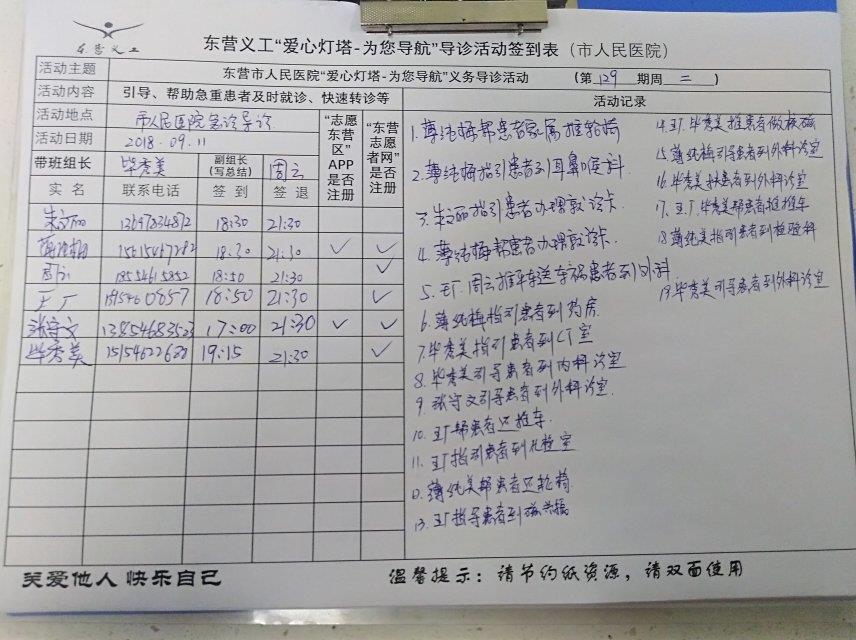 东营义工
东营义工“爱心灯塔-为您导航”导诊活动签到表（市人民医院）
活动主题 东营市人民医院“爱心灯塔-为您导航”义务导诊活动 （第129期周二）
活动内容 引导、帮助急重患者及时就诊、快速转诊等
活动地点 市人民医院急诊导诊
活动日期 2018.09.11
带班组长 毕秀美 副组长（写总结） 周云
“志愿东营区”APP是否注册
“东营志愿者网”是否注册
实名 联系电话 签到 签退
18:30 21:30
18:30 21:30 ✓ ✓
18:50 21:30 ✓
王广 18:50 21:30 ✓
张守文 13854683523 17:00 21:30 ✓ ✓
毕秀美 19:15 21:30 ✓
活动记录
1.薄纯梅帮患者家属推轮椅
2.薄纯梅指引患者到耳鼻喉科
3.朱文丽指引患者办理就诊卡
4.薄纯梅帮患者办理就诊卡.
5.王广.周云推平车送车祸患者到外科
6.薄纯梅指引患者到药房
7.毕秀美指引患者到CT室
8.毕秀美引导患者到内科诊室
9.张守文引导患者到外科诊室.
10.王广帮患者还推车.
11.王广指引患者到化验室
12.薄纯美帮患者还轮椅.
13.王广指导患者到磁共振
14.王广.毕秀美推患者做核磁
15.薄纯梅引导患者到外科诊室
16.毕秀美推患者到外科诊室
17.王广.毕秀美帮患者推推车
18.薄纯美指引患者到检验科
19.毕秀美引导患者到外科诊室
关爱他人 快乐自己
温馨提示：请节约纸资源，请双面使用